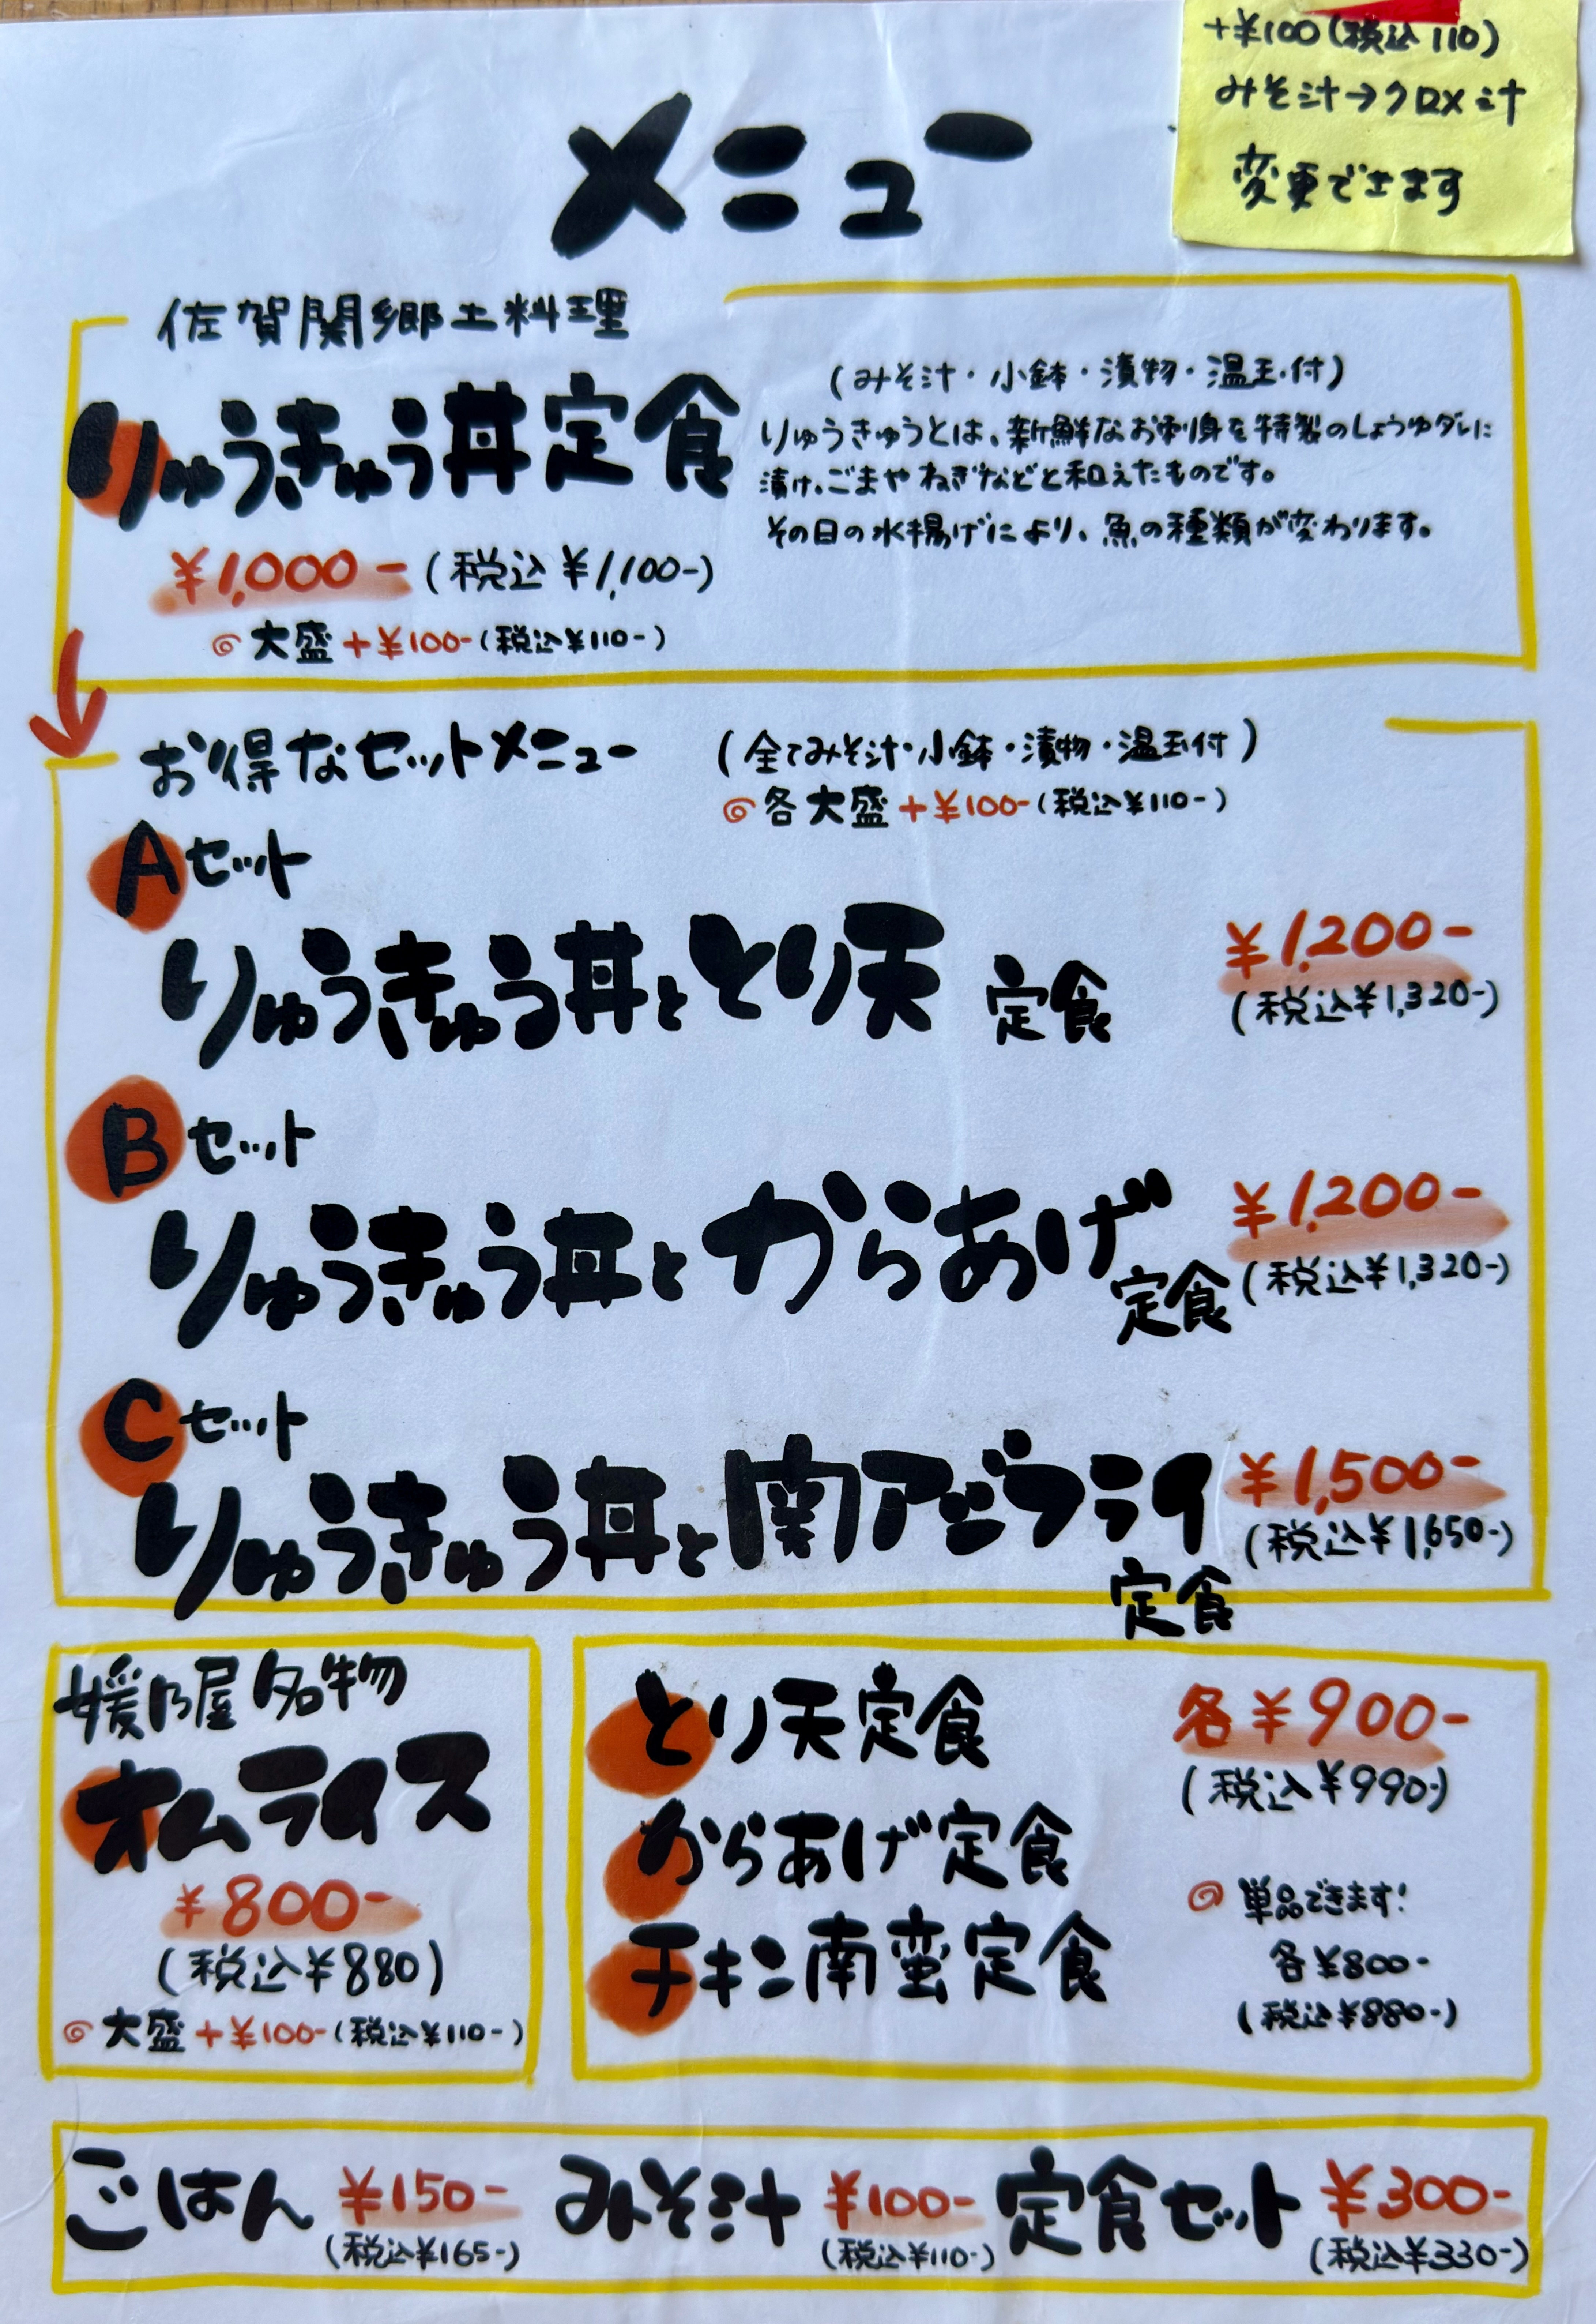 +¥100(税込110)
みそ汁→クロメ汁
変更できます
メニュー
佐賀関郷土料理
りゅうきゅう丼定食
(みそ汁・小鉢・漬物・温玉付)
りゅうきゅうとは、新鮮なお刺身を特製のしょうゆダレに
漬け、ごまやねぎなどと和えたものです。
その日の水揚げにより、魚の種類が変わります。
¥1,000-(税込¥1,100-)
大盛+¥100-(税込¥110-)
お得なセットメニュー
(全てみそ汁・小鉢・漬物・温玉付)
各大盛+¥100-(税込¥110-)
Aセット
りゅうきゅう丼ととり天 定食
¥1,200-
(税込¥1,320-)
Bセット
りゅうきゅう丼とからあげ定食
¥1,200-
(税込¥1,320-)
Cセット
りゅうきゅう丼と関アジフライ
定食
¥1,500-
(税込¥1,650-)
媛乃屋名物
オムライス
¥800-
(税込¥880)
大盛+¥100-(税込¥110-)
とり天定食
からあげ定食
チキン南蛮定食
各¥900-
(税込¥990-)
単品できます!
各¥800-
(税込¥880-)
ごはん ¥150-
(税込¥165-)
みそ汁 ¥100-
(税込¥110-)
定食セット ¥300-
(税込¥330-)